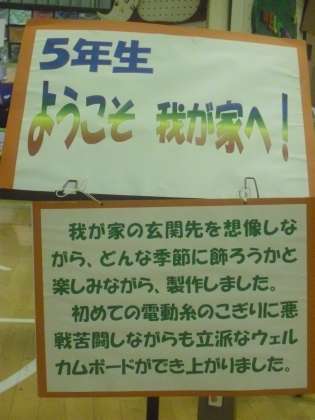 5年生
ようこそ 我が家へ!
我が家の玄関先を想像しな
がら、どんな季節に飾ろうかと
楽しみながら、製作しました。
初めての電動糸のこぎりに悪
戦苦闘しながらも立派なウェル
カムボードができ上がりました。